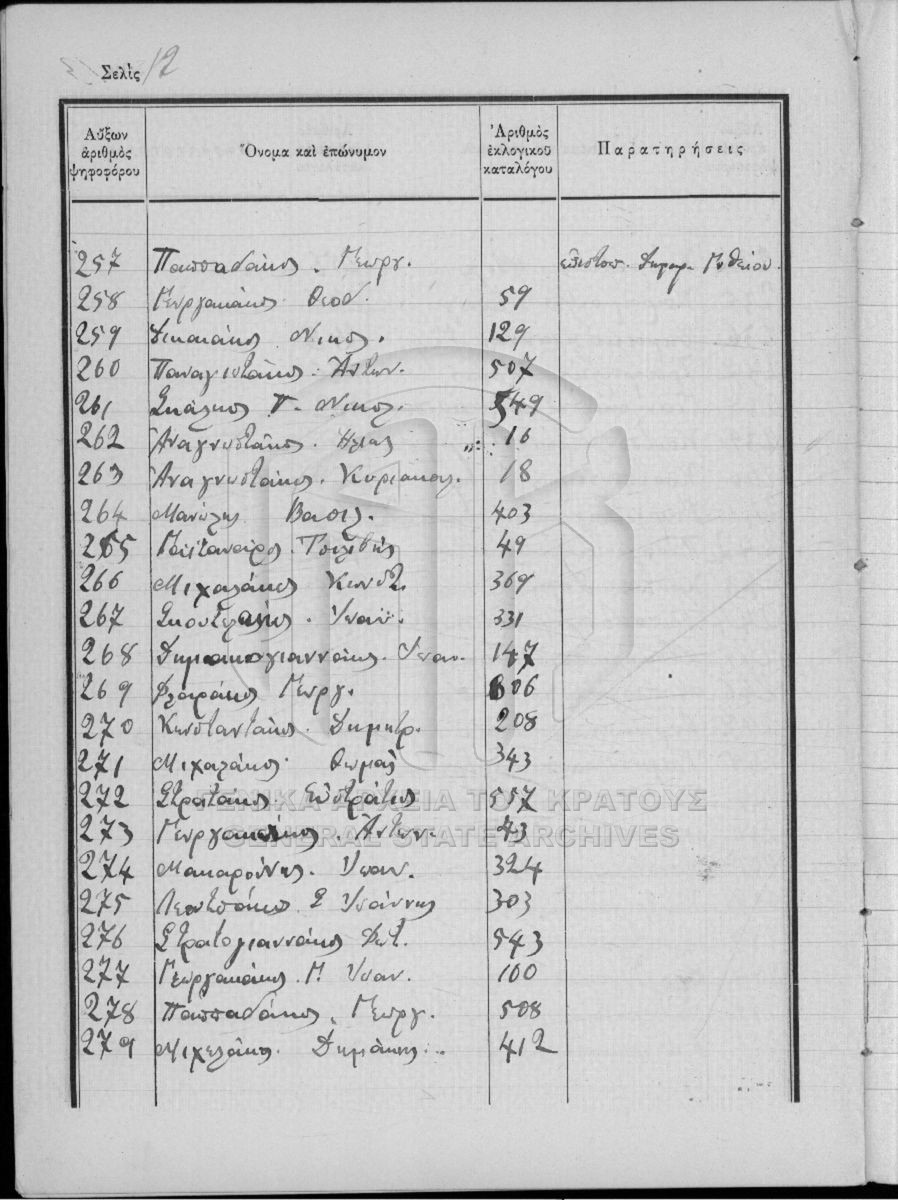 Σελὶς 12
Αὔξων ἀριθμὸς ψηφοφόρου Ὄνομα καὶ ἐπώνυμον Ἀριθμὸς ἐκλογικοῦ καταλόγου Παρατηρήσεις
257 Παππαδάκος. Γεωργ. Γυθείου.
258 Γεωργακάκος Θεοδ. 59
259 Δικαιάκος Νικολ. 129
260 Παναγιωτάκος. Ἀντων. 507
261 Σκάλκος Γ. Νικολ. 549
262 Ἀναγνωστάκος. Ηλίας 16
263 Ἀναγνωστάκος. Κυριακουλ. 18
264 Μανώλης Βασιλ. 403
265 49
266 Μιχαλάκος Κωνστ. 369
267 Σκουτεράκος. Ἰωαν. 331
268 Δημακογιαννάκος. Ἰωαν. 147
269 Γεωργ. 606
270 Κωνσταντάκος. Δημητρ. 208
271 Μιχαλάκος Θωμᾶς 343
272 Στρατάκος Εὐστράτιος 557
273 Γεωργακάκος. Ἀντων. 43
274 Μακαρούνης. Ἰωαν. 324
275 Λεοντσάκος Σ Ἰωάννης 303
276 Στρατογιαννάκος Φωτ. 543
277 Γεωργακάκος. Π. Ἰωαν. 100
278 Παππαδάκος. Γεωργ. 508
279 Μιχελάκος. Δημάκης.. 412
ΓΕΝΙΚΑ ΑΡΧΕΙΑ ΤΟΥ ΚΡΑΤΟΥΣ
GENERAL STATE ARCHIVES